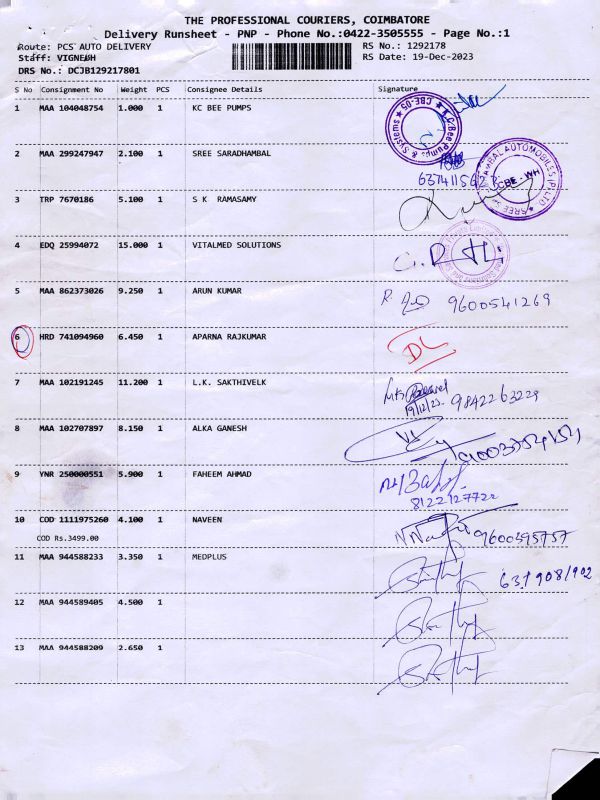 THE PROFESSIONAL COURIERS, COIMBATORE
Delivery Runsheet - PNP - Phone No.:0422-3505555 - Page No.:1
Route: PCS AUTO DELIVERY
RS No.: 1292178
Staff: VIGNESH
RS Date: 19-Dec-2023
DRS No.: DCJB129217801
S No Consignment No Weight PCS Consignee Details Signature
1 MAA 104048754 1.000 1 KC BEE PUMPS
CBE-05
2 MAA 299247947 2.100 1 SREE SARADHAMBAL
CBE - WH
3 TRP 7670186 5.100 1 S K RAMASAMY
4 EDQ 25994072 15.000 1 VITALMED SOLUTIONS
5 MAA 862373026 9.250 1 ARUN KUMAR 9600541269
6 HRD 741094960 6.450 1 APARNA RAJKUMAR DL
7 MAA 102191245 11.200 1 L.K. SAKTHIVELK
19/12/23 9842263229
8 MAA 102707897 8.150 1 ALKA GANESH
9 YNR 250000551 5.900 1 FAHEEM AHMAD
8122127722
10 COD 1111975260 4.100 1 NAVEEN 9600395757
COD Rs.3499.00
11 MAA 944588233 3.350 1 MEDPLUS
12 MAA 944589405 4.500 1
13 MAA 944588209 2.650 1